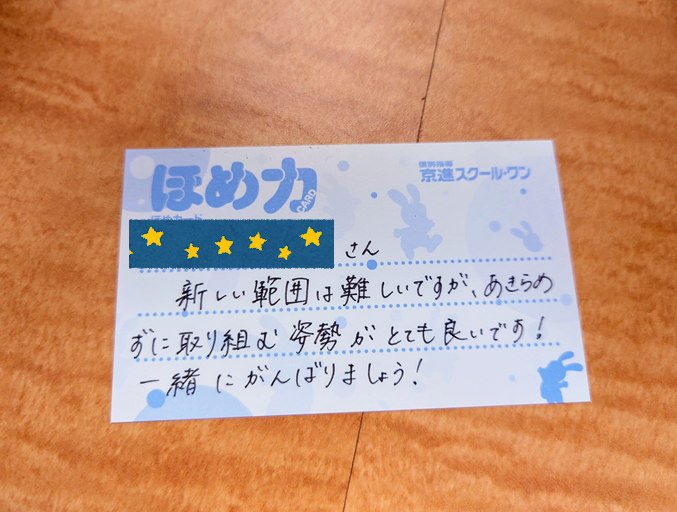 ほめ力
CARD
ほめカード
個別指導
京進スクール・ワン
さん
新しい範囲は難しいですが、あきらめ
ずに取り組む姿勢がとても良いです!
一緒にがんばりましょう!